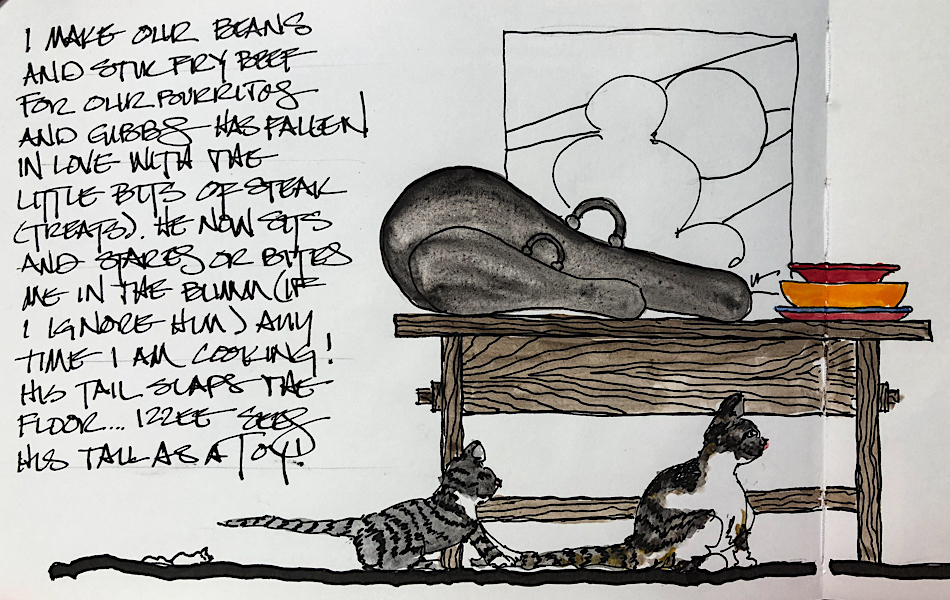 I MAKE OUR BEANS
AND STIR FRY BEEF
FOR OUR BURRITOS
AND GIBBS HAS FALLEN
IN LOVE WITH THE
LITTLE BITS OF STEAK
(TREATS). HE NOW SITS
AND STARES OR BITES
ME IN THE BUMM (IF
I IGNORE HIM) ANY
TIME I AM COOKING!
HIS TAIL SLAPS THE
FLOOR... IZZEE SEES
HIS TAIL AS A TOY!